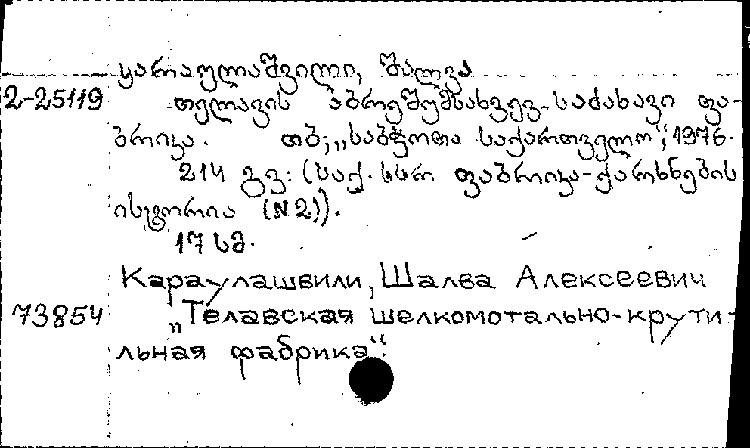 ყარაულაშვილი, შალვა
2-25119 თელავის აბრეშუმსახვევ-საძახავი ფა-
ბრიკა. თბ; „საბჭოთა საქართველო“, 1976.
214 გვ: (საქ. სსრ ფაბრიკა-ქარხნების
ისტორია (N2)).
17 სმ.
Караулашвили, Шалва Алексеевич
73854 „Телавская шелкомотально-крути-
льная фабрика“.